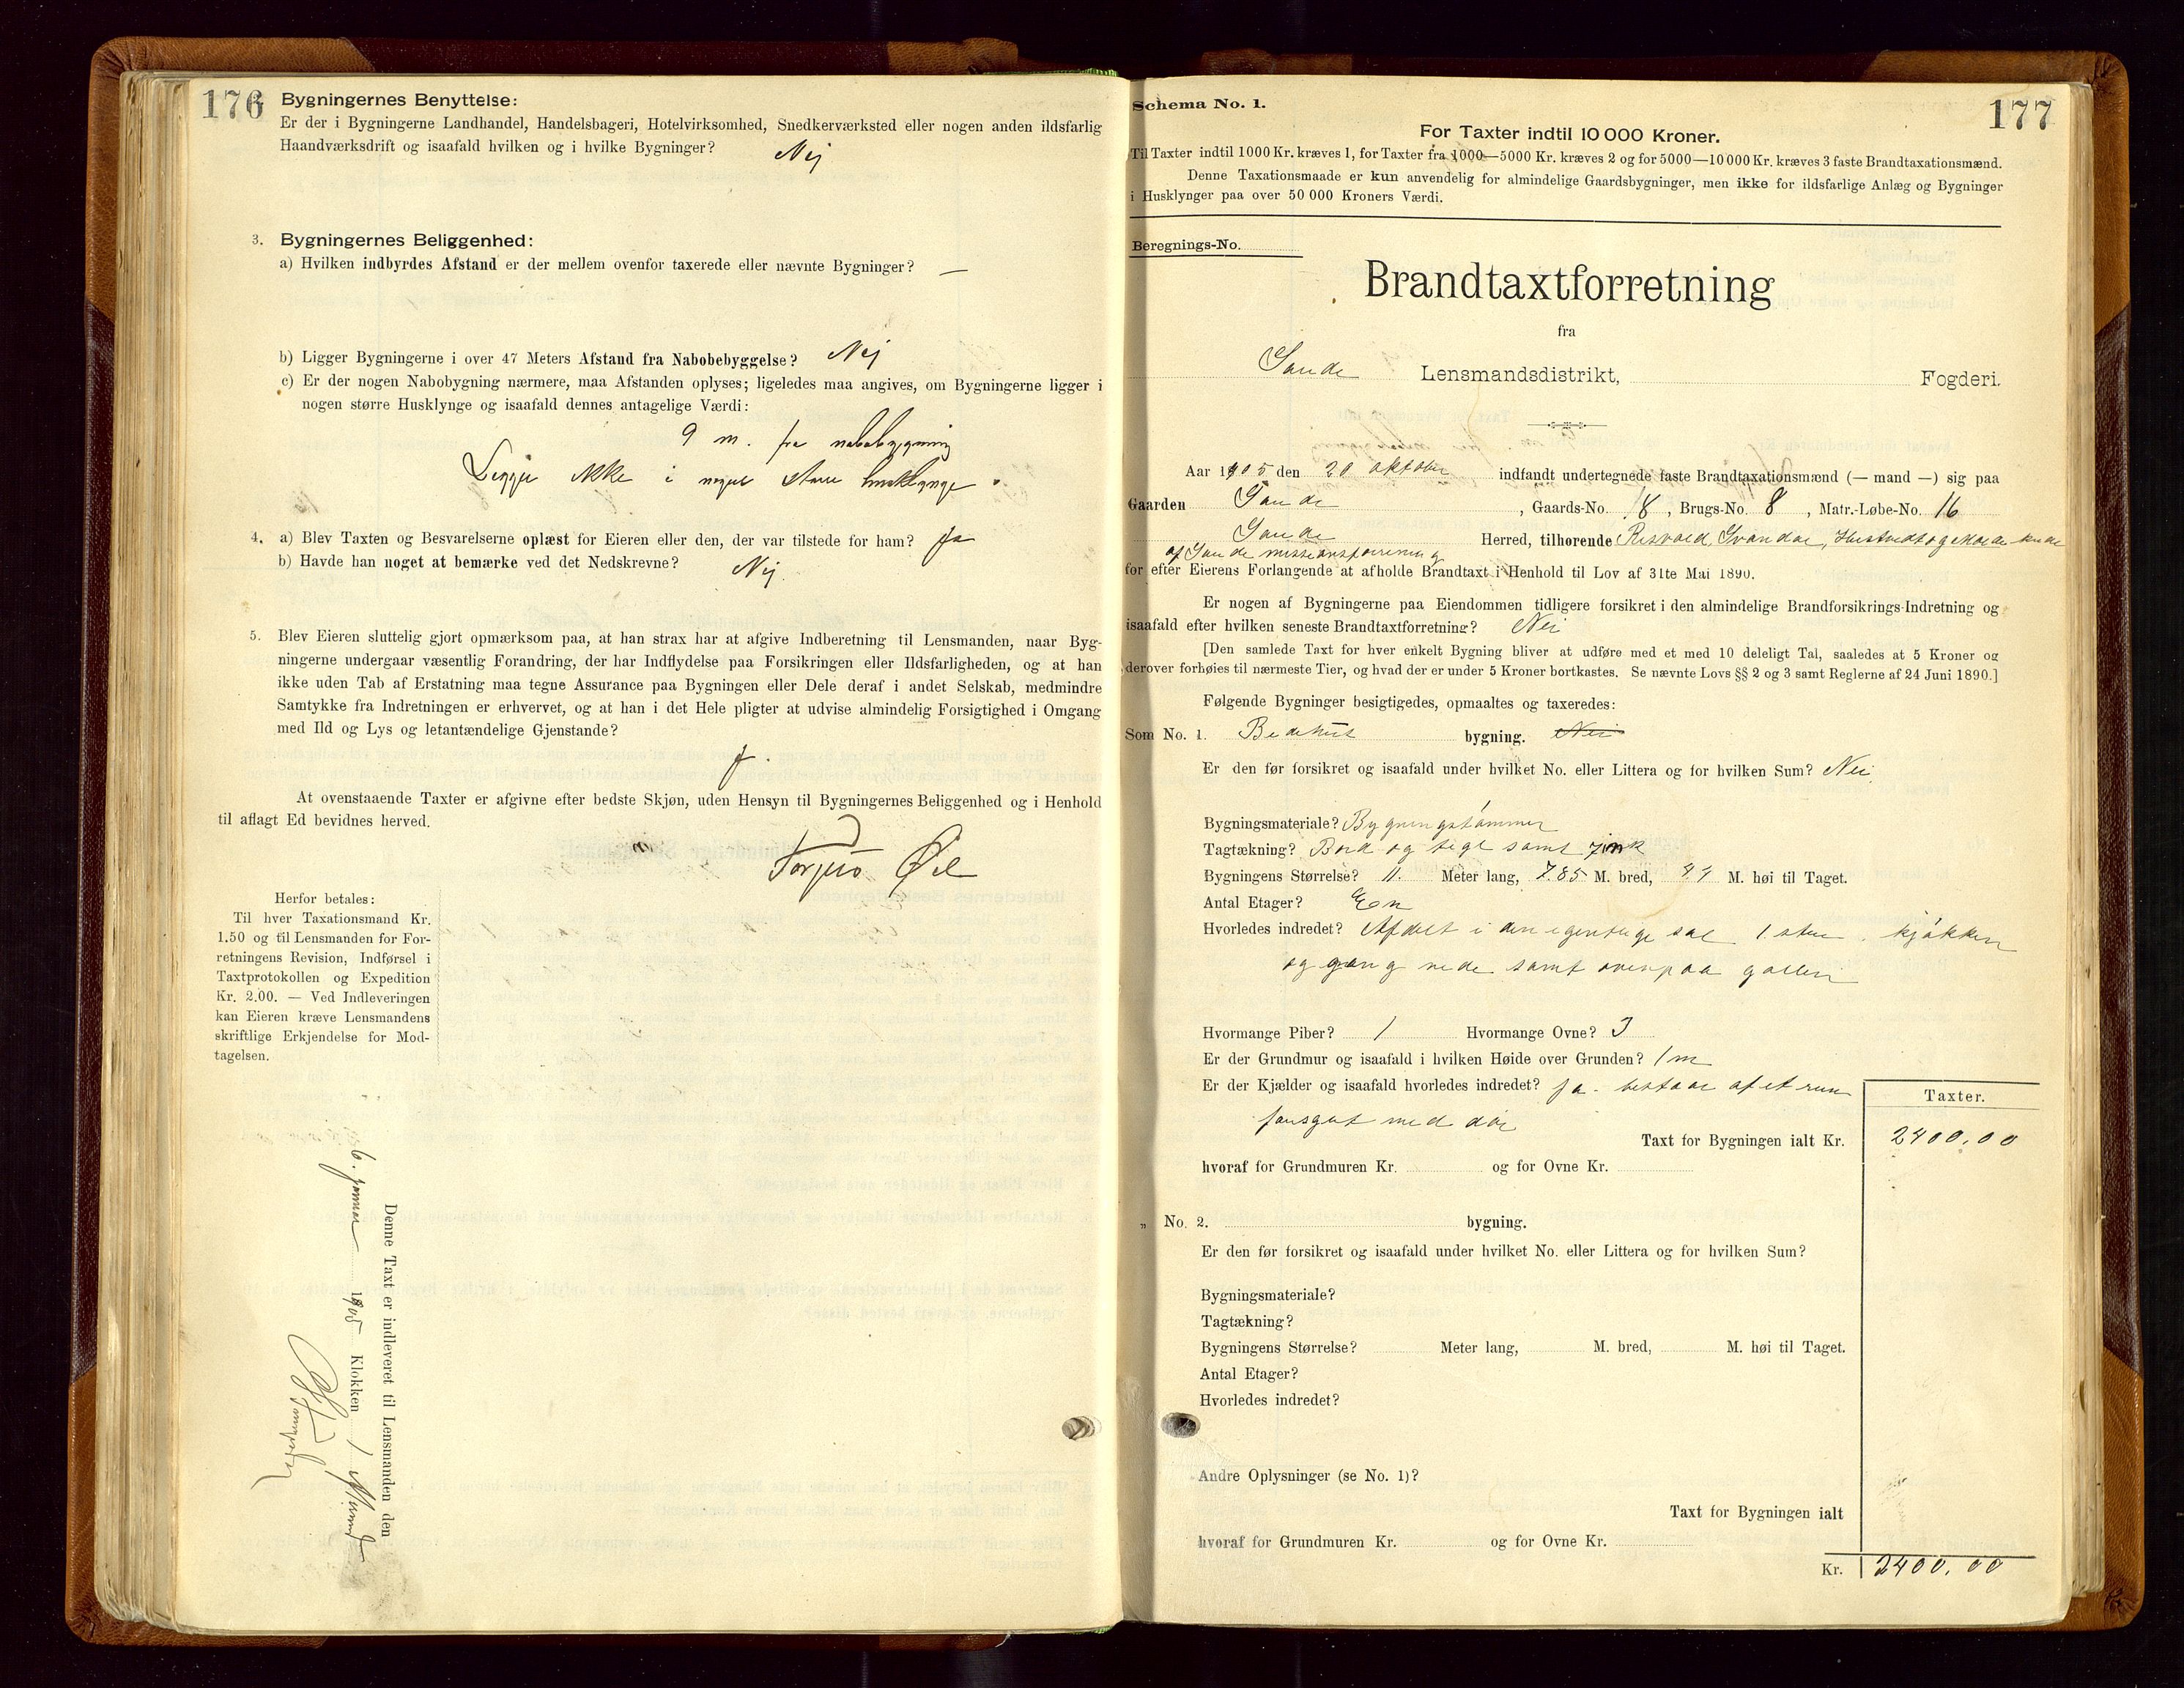 176
Bygningernes Benyttelse:
Er der i Bygningerne Landhandel, Handelsbageri, Hotelvirksomhed, Snedkerværksted eller nogen anden ildsfarlig
Haandværksdrift og isaafald hvilken og i hvilke Bygninger? Nej
3. Bygningernes Beliggenhed:
a) Hvilken indbyrdes Afstand er der mellem ovenfor taxerede eller nævnte Bygninger? —
b) Ligger Bygningerne i over 47 Meters Afstand fra Nabobebyggelse? Nej
c) Er der nogen Nabobygning nærmere, maa Afstanden oplyses; ligeledes maa angives, om Bygningerne ligger i
nogen større Husklynge og isaafald dennes antagelige Værdi:
9 m. fra nabobygning
Ligger ikke i nogen større husklynge.
4. a) Blev Taxten og Besvarelserne oplæst for Eieren eller den, der var tilstede for ham? Ja
b) Havde han noget at bemærke ved det Nedskrevne? Nej.
5. Blev Eieren sluttelig gjort opmærksom paa, at han strax har at afgive Indberetning til Lensmanden, naar Byg-
ningerne undergaar væsentlig Forandring, der har Indflydelse paa Forsikringen eller Ildsfarligheden, og at han
ikke uden Tab af Erstatning maa tegne Assurance paa Bygningen eller Dele deraf i andet Selskab, medmindre
Samtykke fra Indretningen er erhvervet, og at han i det Hele pligter at udvise almindelig Forsigtighed i Omgang
med Ild og Lys og letantændelige Gjenstande?
J.
At ovenstaaende Taxter er afgivne efter bedste Skjøn, uden Hensyn til Bygningernes Beliggenhed og i Henhold
til aflagt Ed bevidnes herved.
Torjus
Herfor betales:
Til hver Taxationsmand Kr.
1.50 og til Lensmanden for For-
retningens Revision, Indførsel i
Taxtprotokollen og Expedition
Kr. 2.00. — Ved Indleveringen
kan Eieren kræve Lensmandens
skriftlige Erkjendelse for Mod-
tagelsen.
Denne Taxt er indleveret til Lensmanden den
6. januar 1905 Klokken 1
177
Schema No. 1.
For Taxter indtil 10 000 Kroner.
Til Taxter indtil 1000 Kr. kræves 1, for Taxter fra 1000—5000 Kr. kræves 2 og for 5000—10 000 Kr. kræves 3 faste Brandtaxationsmænd.
Denne Taxationsmaade er kun anvendelig for almindelige Gaardsbygninger, men ikke for ildsfarlige Anlæg og Bygninger
i Husklynger paa over 50 000 Kroners Værdi.
Beregnings-No.
Brandtaxtforretning
fra
Sande Lensmandsdistrikt, Fogderi.
Aar 1905 den 20 oktober indfandt undertegnede faste Brandtaxationsmænd (— mand —) sig paa
Gaarden Sande, Gaards-No. 18, Brugs-No. 8, Matr.-Løbe-No. 16
Sande Herred, tilhørende Risvold, Svandal,
af Sande missionsforening
for efter Eierens Forlangende at afholde Brandtaxt i Henhold til Lov af 31te Mai 1890.
Er nogen af Bygningerne paa Eiendommen tidligere forsikret i den almindelige Brandforsikrings-Indretning og
isaafald efter hvilken seneste Brandtaxtforretning? Nei
[Den samlede Taxt for hver enkelt Bygning bliver at udføre med et med 10 deleligt Tal, saaledes at 5 Kroner og
derover forhøies til nærmeste Tier, og hvad der er under 5 Kroner bortkastes. Se nævnte Lovs §§ 2 og 3 samt Reglerne af 24 Juni 1890.]
Følgende Bygninger besigtigedes, opmaaltes og taxeredes:
Som No. 1. Bedehus bygning. Nei
Er den før forsikret og isaafald under hvilket No. eller Littera og for hvilken Sum? Nei
Bygningsmateriale? Bygningstømmer
Tagtækning? Bord og tegl samt zink
Bygningens Størrelse? 11. Meter lang, 7.85 M. bred, 44 M. høi til Taget.
Antal Etager? En
Hvorledes indredet? Afdelt i den egentlige sal 1 stue, kjøkken
og gang nede samt ovenpaa galleri
Hvormange Piber? 1 Hvormange Ovne? 3
Er der Grundmur og isaafald i hvilken Høide over Grunden? 1 m
Er der Kjælder og isaafald hvorledes indredet? Ja. bestaar af et rum
forsynt med dør
Taxter.
Taxt for Bygningen ialt Kr. 2400,00
hvoraf for Grundmuren Kr. og for Ovne Kr.
„ No. 2. bygning.
Er den før forsikret og isaafald under hvilket No. eller Littera og for hvilken Sum?
Bygningsmateriale?
Tagtækning?
Bygningens Størrelse? Meter lang, M. bred, M. høi til Taget.
Antal Etager?
Hvorledes indredet?
Andre Oplysninger (se No. 1)?
Taxt for Bygningen ialt
hvoraf for Grundmuren Kr. og for Ovne Kr.
Kr. 2400,00